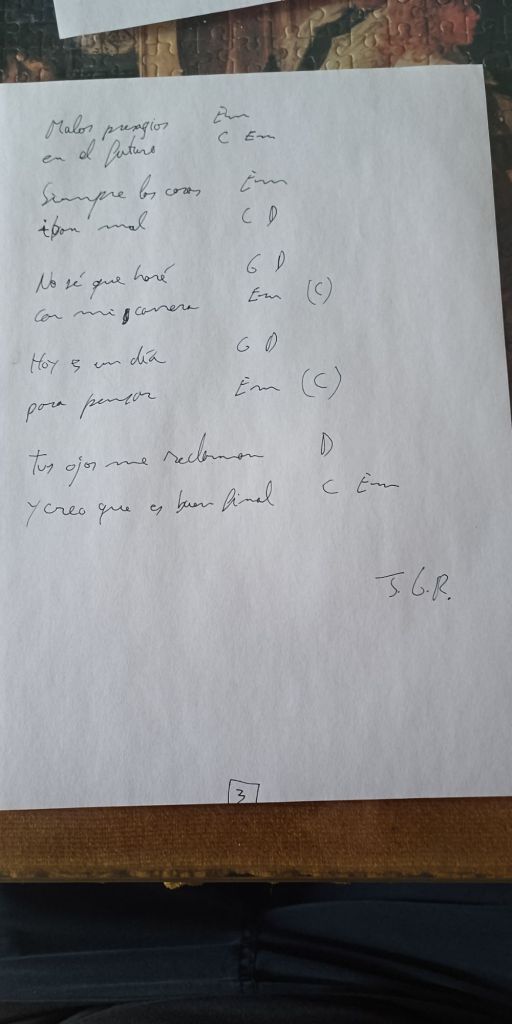 Malos presagios Em
en el futuro C Em
Siempre las cosas Em
iban mal C D
No sé que haré G D
con mi carrera Em (C)
Hoy es un día G D
para pensar Em (C)
Tus ojos me reclaman D
y creo que es buen final C Em
J.G.R.
3